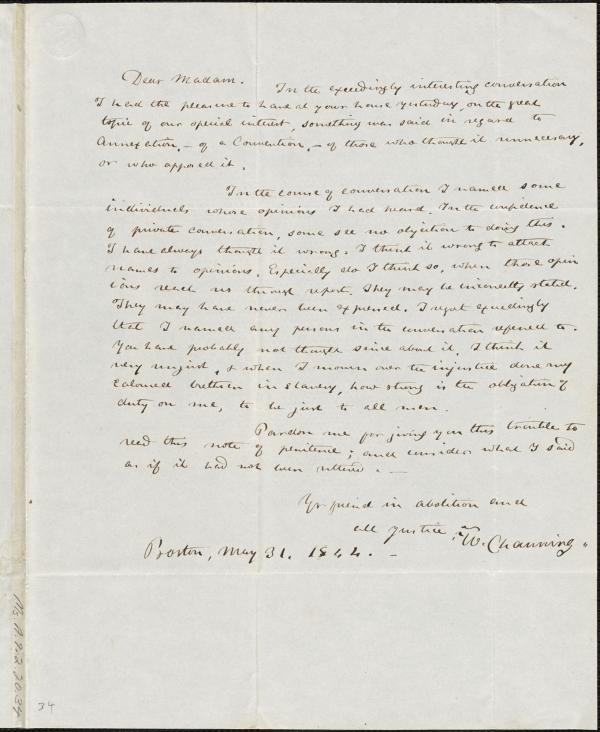 Dear Madam. In the exceedingly interesting conversation
I had the pleasure to have at your house yesterday, on the great
topic of our special interest, something was said in regard to
Annexation, - of a Convention, - of those who thought it unnecessary,
or who opposed it.
In the course of conversation I named some
individuals whose opinions I had heard. In the confidence
of private conversation, some see no objection to doing this.
I have always thought it wrong. I think it wrong to attach
names to opinions. Especially do I think so, when those opin
ions reach us through report. They may be incorrectly stated.
They may have never been expressed. I regret exceedingly
that I named any persons in the conversation referred to.
You have probably not thought since about it. I think it
very unjust, & when I mourn over the injustice done my
coloured brethren in slavery, how strong is the obligation of
duty on me, to be just to all men.
Pardon me for giving you this trouble to
read this note of penitence; and consider what I said
as if it had not been uttered. -
Yr friend in abolition and
all justice, W. Channing.
Boston, May 31. 1844. -
Ms. A. 9. 2. 20. 34
34